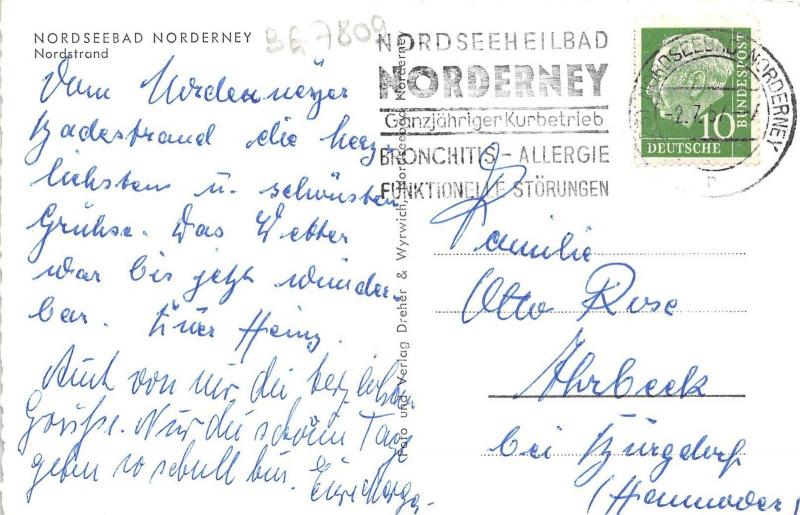 NORDSEEBAD NORDERNEY
Nordstrand
BE 7809
Vom Norderneyer
Badestrand die herz-
lichsten u. schönsten
Grühse. Das Wetter
war bis jetzt wunder-
bar. Euer Heinz.
Auch von mir die herzlichsten
Grüße. Nur die schönen Tage
gehen so schnell hin.
Foto und Verlag Dreher & Wyrwich, Nordseebad Norderney
NORDSEEHEILBAD
NORDERNEY
Ganzjähriger Kurbetrieb
BRONCHITIS - ALLERGIE
FUNKTIONELLE STÖRUNGEN
NORDSEEBAD NORDERNEY
-2.7.57
10
DEUTSCHE
BUNDESPOST
Familie
Otto Rose
Ahrbeck
bei Burgdorf
(Hannover)